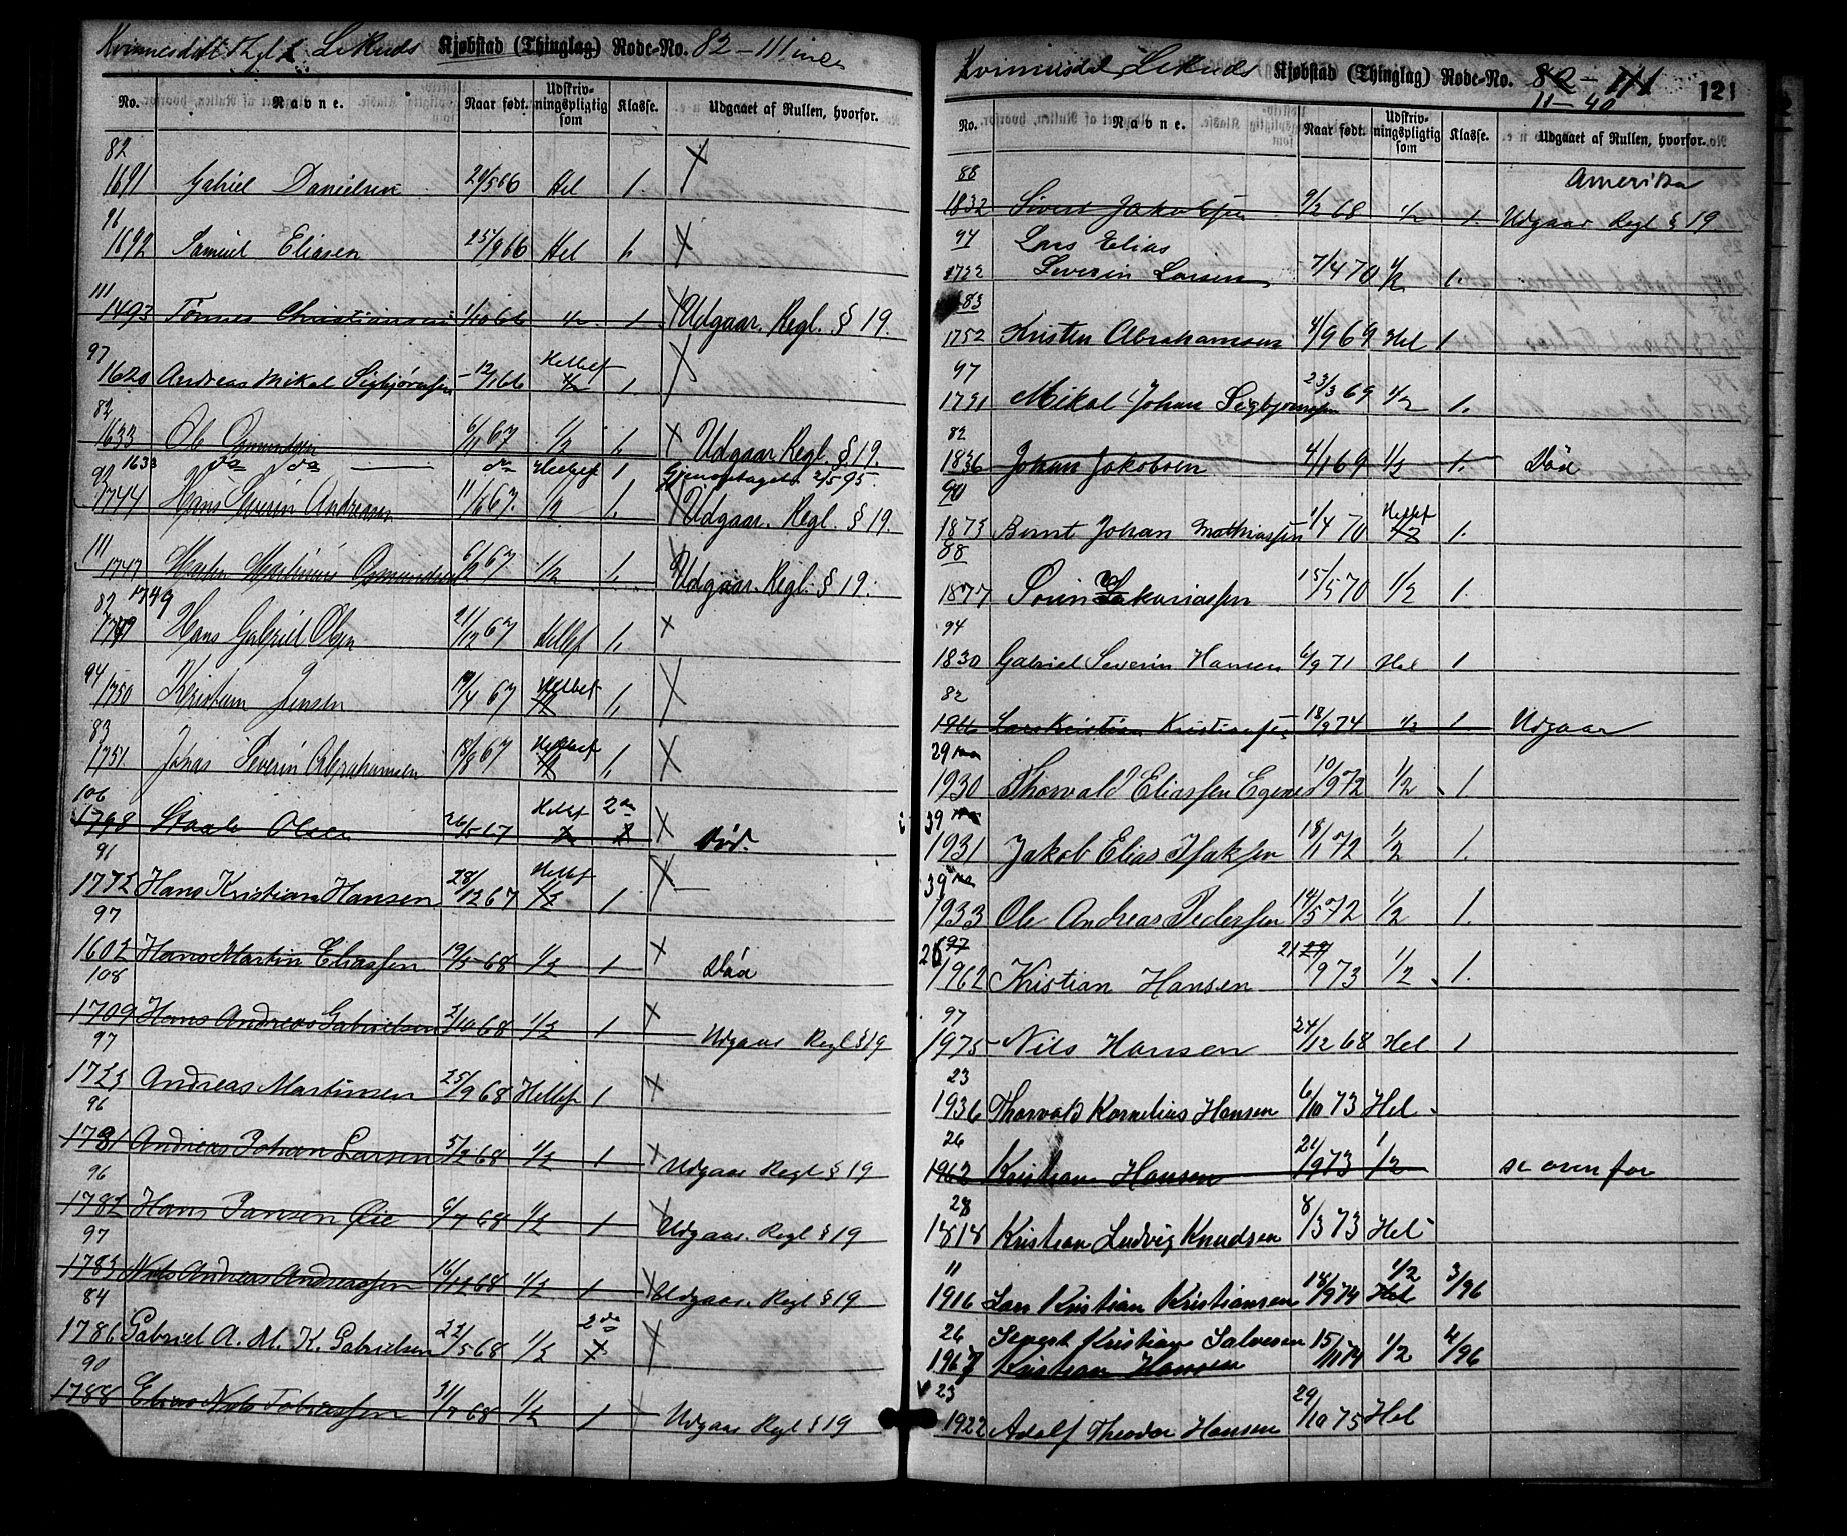 Kvinnesdal Thgl. Lekneds Kjøbstad (Thinglag) Rode-No. 82-111 incl.
No. Navne. Naar født. Udskrivningspligtig som Klasse. Udgaaet af Rullen, hvorfor.
82
1691 Gabriel Danielsen 20/5 66 Hel 1. X
96
1692 Samuel Eliasen 25/9 66 Hel 1. X
111
1493 Tønnes Christiansen 1/10 66 1/2 1 X Udgaar. Regl. § 19.
97
1620 Andreas Mikal Sigbjørnsen 12/1 66 Helbef 1/2 1. X
82
1633 Ole Omundsen 6/11 67 1/2 1. X Udgaar Regl § 19.
1633 do do do Helbef 1 Gjenoptaget 2/5 95
92
1744 Hans Severin Andreasen 11/6 67. 1/2 1. X Udgaar. Regl. § 19.
111
1747 Martin Omundsen 6/2 67 1/2 1. Udgaar. Regl. § 19.
82 1749
Hans Gabriel Olsen 21/12 67 Helbef 1. X
94
1750 Kristian Jensen 19/4 67 Helbef 1/2 1. X
83
1751 Johas Severin Abrahamsen 18/8 67 Helbef 1/2 1. X
106
1798 Staale Olsen 26/5 67 Helbef 2den X Død.
91
1772 Hans Kristian Hansen 28/12 67 Helbef 1/2 1 X
97
1602 Hans Martin Eliassen 19/5 68 1/2 1 X Død
108
1709 Hans Andreas Gabrielsen 2/10 68 1/2 1 X Udgaar Regl § 19
97
1723 Andreas Martinsen 25/9 68 Helbef 1 X
96
1781 Andreas Johan Larsen 5/2 68 1/2 1 X Udgaar Regl § 19
96
1782 Hans Jansen Øie 6/7 68 1/2 1 X Udgaar. Regl § 19
97
1783 Nils Andreas Andreassen 16/12 68 1/2 1 X Udgaar. Regl § 19
84
1786 Gabriel A. M. K. Gabrielsen 22/5 68 1/2 2de X
90
1788 Elias Nils Tobiassen 31/7 68 1/2 1 Udgaar Regl § 19
Kvinnesdal Lekneds Kjøbstad (Thinglag) Rode-No. 82-111 121
11-40
No. Navne. Naar født. Udskrivningspligtig som Klasse. Udgaaet af Rullen, hvorfor.
88 Amerika
1832 Sivert Jakobsen 9/2 68 1/2 1. Udgaar Regl § 19
94 Lars Elias
1722 Severin Larsen 7/4 70 1/2 1.
83
1752 Kristen Abrahamsen 4/9 69 Hel 1
97
1791 Mikal Johan Sigbjørnsen 23/3 69 1/2 1.
82
1836 Johan Jakobsen 4/1 69 1/2 1. Død
90
1873 Bernt Johan Mathiassen 1/4 70 Helbef 1/2 1.
88
1877 Søren Sakariassen 15/5 70 1/2 1
94
1830 Gabriel Severin Hansen 6/9 71 Hel 1
82
1916 Lars Kristian Kristiansen 18/9 74 1/2 1. Udgaar
29
1930 Thorvald Eliassen Egenes 10/9 72 1/2 1
39
1931 Jakob Elias Isaksen 18/1 72 1/2 1.
39
1933 Ole Andreas Pedersen 14/5 72 1/2 1.
26 97 21
1962 Kristian Hansen 29/9 73 1/2 1.
97
1975 Nils Hansen 24/12 68 Hel 1
23
1936 Thorvald Kornelius Hansen 6/10 73 Hel
26
1962 Kristian Hansen 21/9 73 1/2 se ovenfor
28
1818 Kristian Ludvig Knudsen 8/3 73 Hel
11 1/2
1916 Lars Kristian Kristiansen 18/9 74 Hel 3/96
26 Sivert Kristian Salvesen 15
1967 Kristian Hansen /11 74 1/2 4/96
23
1922 Adolf Theodor Hansen 29/10 75 Hel